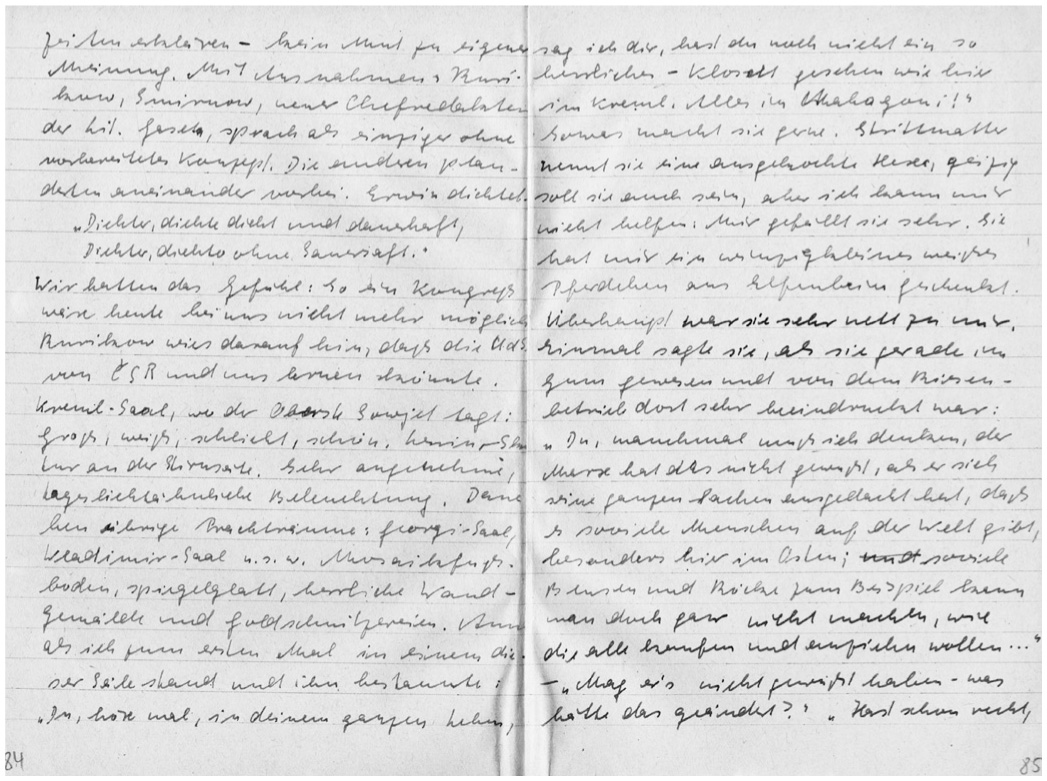 zeiten erklären – kein Mut zu eigener
Meinung. Mit Ausnahmen: Ruri-
kow, Smirnow, neuer Chefredakteu
der Lit. Gaseta, sprach als einziger ohne
vorbereitetes Konzept. Die anderen plau-
derten aneinander vorbei. Erwin dichtet:
„Dichter, dichte dicht und dauerhaft,
Dichter, dichte ohne Sauersaft."
Wir hatten das Gefühl: So ein Kongreß
wäre heute bei uns nicht mehr möglich
Rurikow wies darauf hin, daß die UdS
von ČSR und uns lernen könnte.
Kreml-Saal, wo der Oberste Sowjet tagt:
Groß, weiß, schlicht, schön. Lenin-Sta
tur an der Stirnseite. Sehr angenehme,
tageslichtähnliche Beleuchtung. Dane
ben übrige Prachträume: Georgi-Saal,
Wladimir-Saal u.s.w. Mosaikfuß-
boden, spiegelglatt, herrliche Wand-
gemälde und Goldschnitzereien. Anna
als ich zum ersten Mal in einem die-
ser Säle stand und ihn bestaunte:
„Du, höre mal, in deinem ganzen Leben,
84
sag ich dir, hast du noch nicht ein so
herrliches – Klosett gesehen wie hier
im Kreml. Alles in Mahagoni!"
Sowas macht sie gerne. Strittmatter
nennt sie eine ausgekochte Hexe, geizig
soll sie auch sein, aber ich kann mir
nicht helfen: Mir gefällt sie sehr. Sie
hat mir ein winzigkleines weißes
Pferdchen aus Elfenbein geschenkt.
Überhaupt war sie sehr nett zu mir.
Einmal sagte sie, als sie gerade im
Gum gewesen und von dem Riesen-
betrieb dort sehr beeindruckt war:
„Du, manchmal muß ich denken, der
Marx hat das nicht gewußt, als er sich
seine ganzen Sachen ausgedacht hat, daß
es soviele Menschen auf der Welt gibt,
besonders hier im Osten; und soviele
Blusen und Röcke zum Beispiel kann
man doch gar nicht machen, wie
die alle kaufen und anziehn wollen..."
– „Mag er's nicht gewußt haben – was
hätte das geändert?" „Hast schon recht,
85